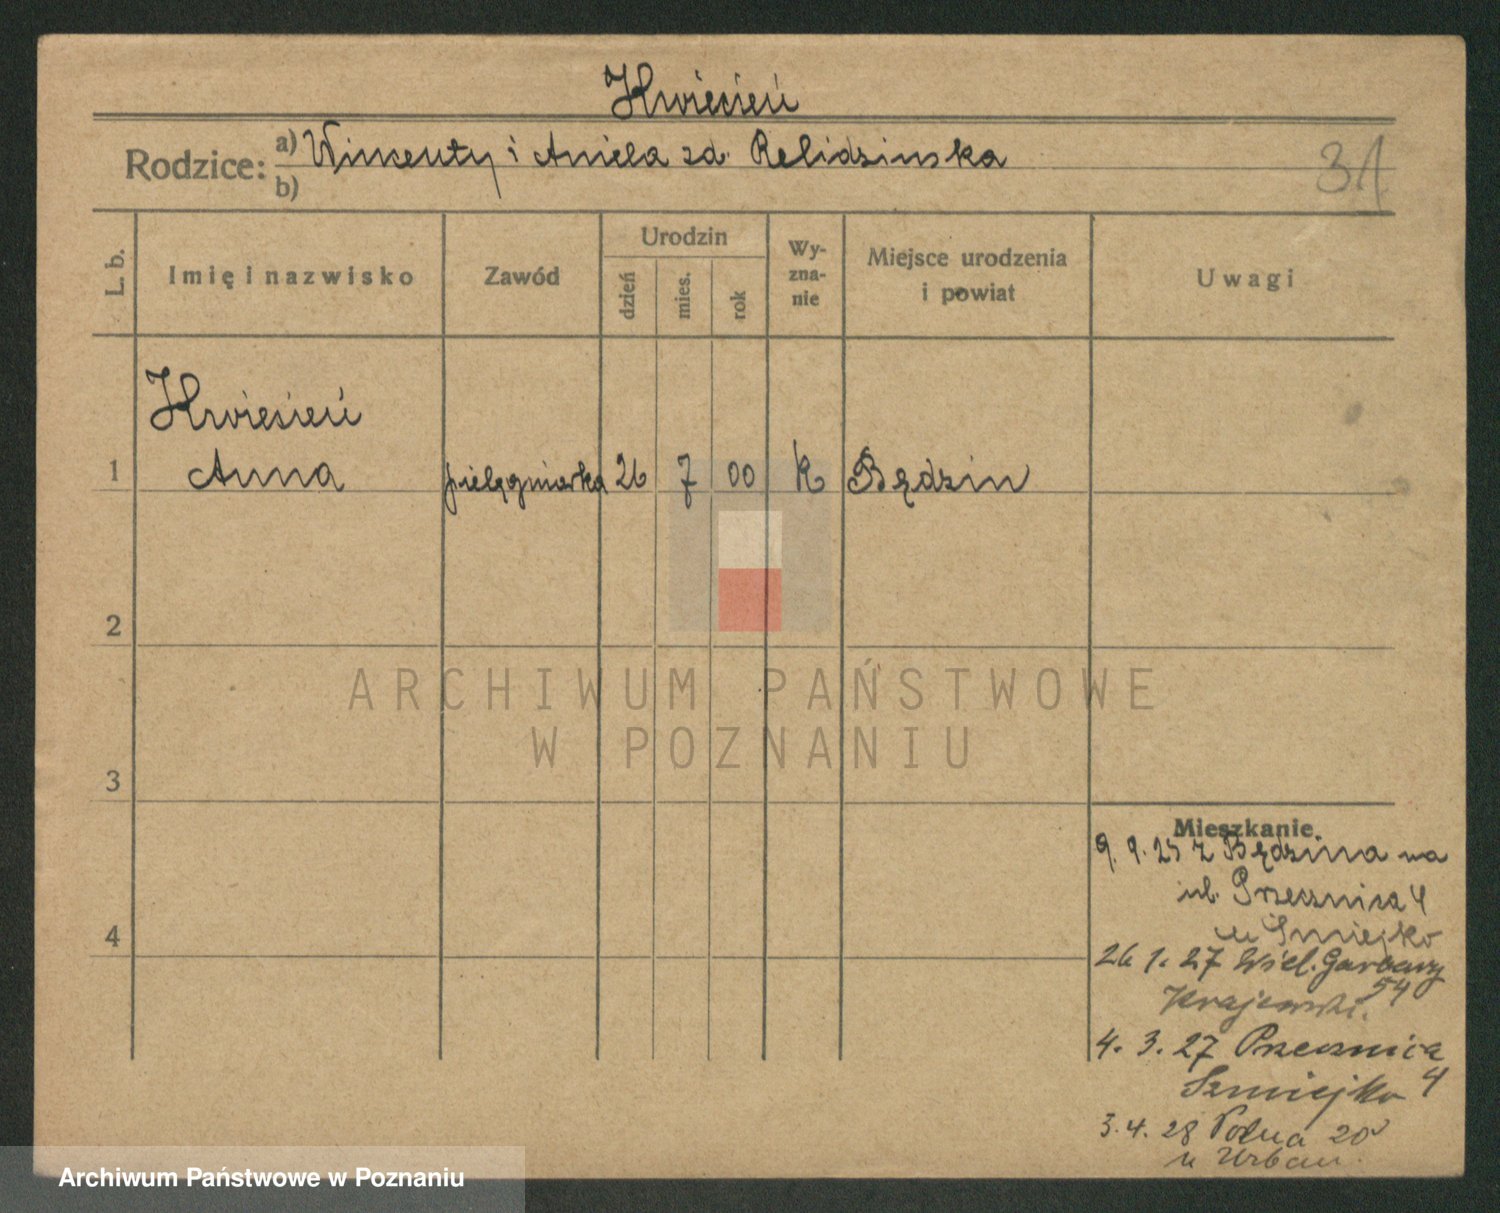 Kwiecień
Rodzice: a) Wincenty i Aniela zd. Relidzinska
b)
31
L. b.
Imię i nazwisko
Zawód
Urodzin
dzień
mies.
rok
Wy-
zna-
nie
Miejsce urodzenia
i powiat
Uwagi
Kwiecień
1 Anna pielęgniarka 26 7 00 k Będzin
2
3
4
ARCHIWUM PAŃSTWOWE
W POZNANIU
Mieszkanie.
9. 9. 25 z Będzina na
ul. Przecznica 4
u Smiejko
26 1. 27 Wiel. Garbary
54
Krajewski.
4. 3. 27 Przecznica
4
Szmiejko
3. 4. 28 Polna 20
u Urban.
Archiwum Państwowe w Poznaniu